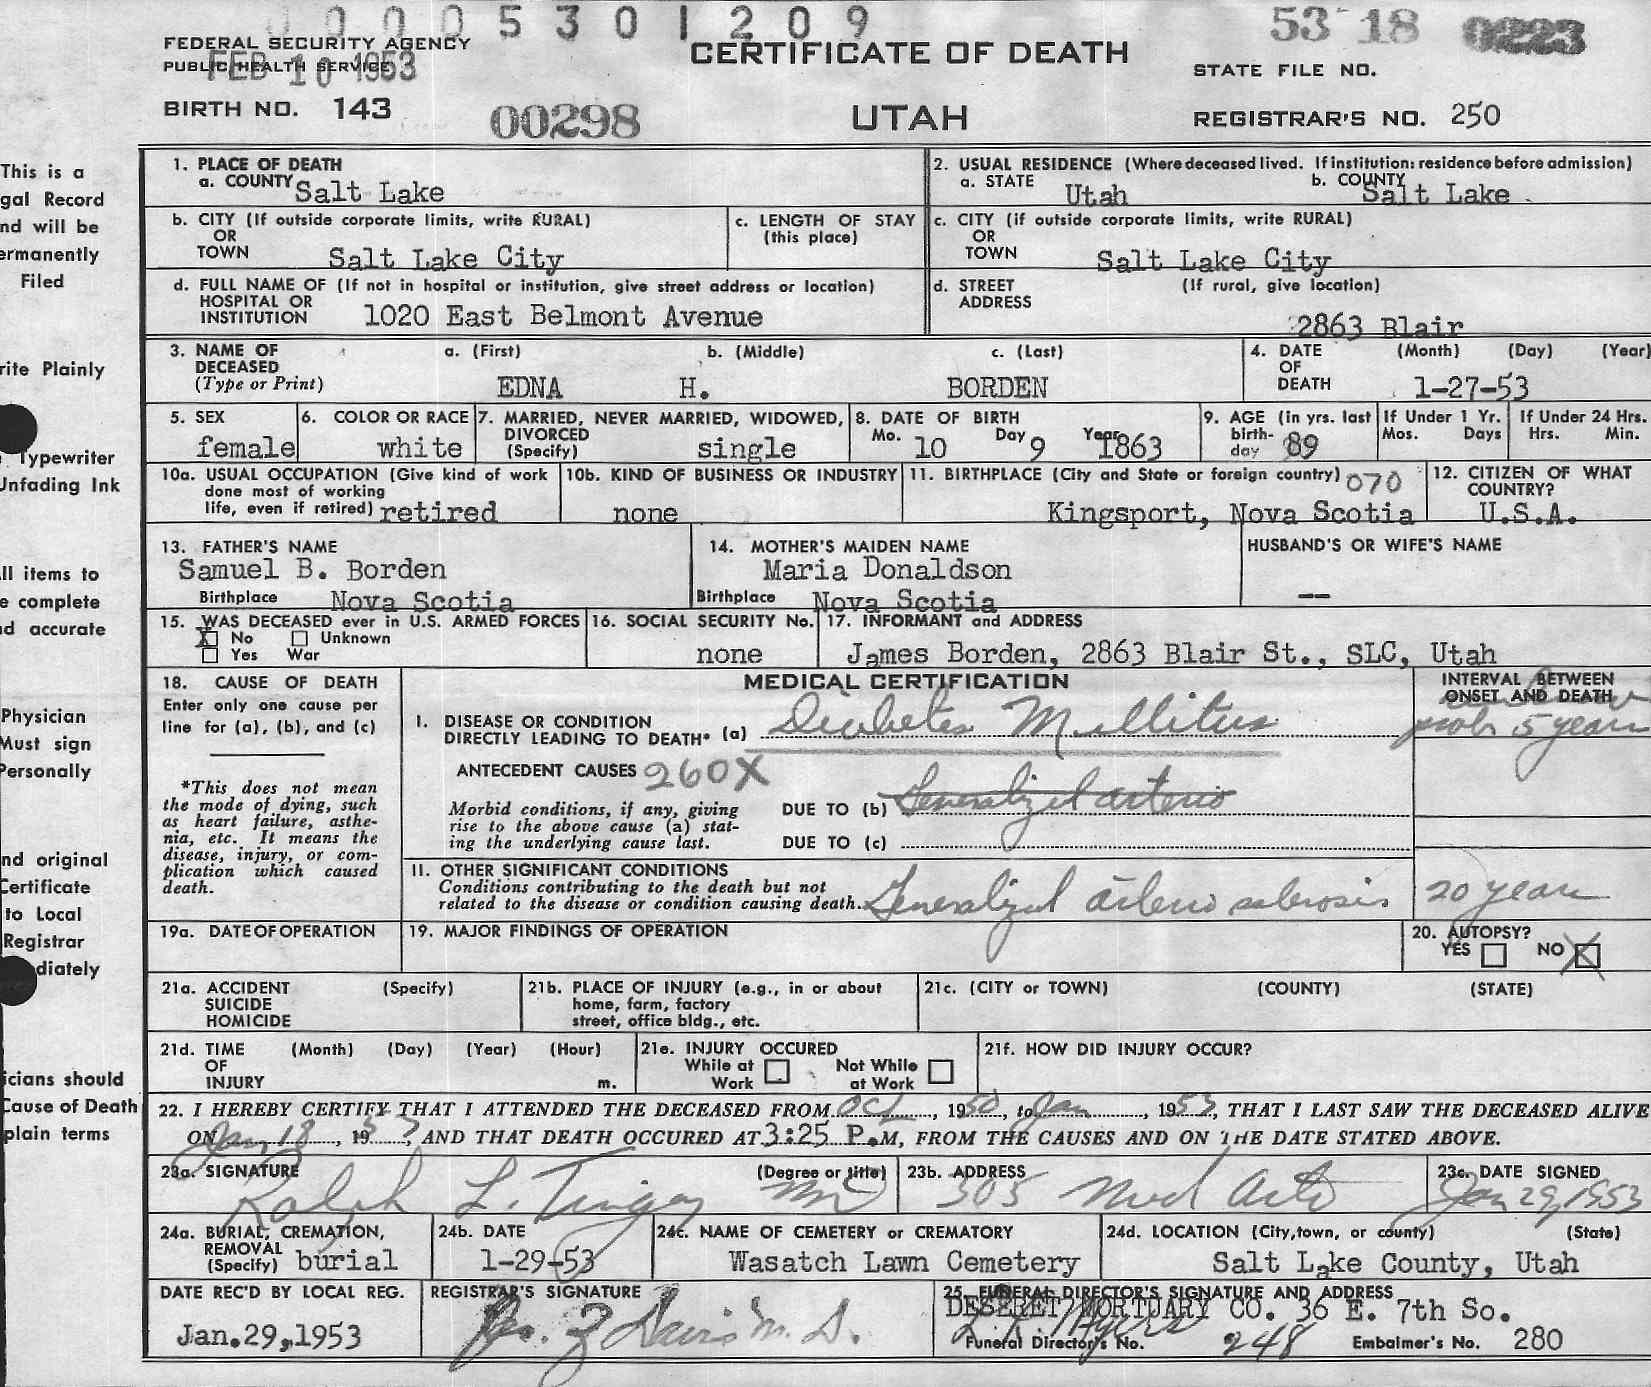 0 0 0 0 5 3 0 1 2 0 9
53 18 0223
FEDERAL SECURITY AGENCY
PUBLIC HEALTH SERVICE
FEB 10 1953
CERTIFICATE OF DEATH
STATE FILE NO.
BIRTH NO. 143
00298
UTAH
REGISTRAR'S NO. 250
This is a
gal Record
nd will be
ermanently
Filed
rite Plainly
Typewriter
Unfading Ink
ll items to
e complete
nd accurate
Physician
Must sign
Personally
nd original
Certificate
to Local
Registrar
diately
icians should
Cause of Death
plain terms
1. PLACE OF DEATH
a. COUNTY Salt Lake
2. USUAL RESIDENCE (Where deceased lived. If institution: residence before admission)
a. STATE Utah b. COUNTY Salt Lake
b. CITY (If outside corporate limits, write RURAL)
OR
TOWN Salt Lake City
c. LENGTH OF STAY
(this place)
c. CITY (if outside corporate limits, write RURAL)
OR
TOWN Salt Lake City
d. FULL NAME OF (If not in hospital or institution, give street address or location)
HOSPITAL OR
INSTITUTION 1020 East Belmont Avenue
d. STREET (If rural, give location)
ADDRESS
2863 Blair
3. NAME OF a. (First) b. (Middle) c. (Last)
DECEASED
(Type or Print) EDNA H. BORDEN
4. DATE (Month) (Day) (Year)
OF
DEATH 1-27-53
5. SEX
female
6. COLOR OR RACE
white
7. MARRIED, NEVER MARRIED, WIDOWED,
DIVORCED
(Specify) single
8. DATE OF BIRTH
Mo. 10 Day 9 Year 1863
9. AGE (in yrs. last
birth-
day 89
If Under 1 Yr.
Mos. Days
If Under 24 Hrs.
Hrs. Min.
10a. USUAL OCCUPATION (Give kind of work
done most of working
life, even if retired) retired
10b. KIND OF BUSINESS OR INDUSTRY
none
11. BIRTHPLACE (City and State or foreign country) 070
Kingsport, Nova Scotia
12. CITIZEN OF WHAT
COUNTRY?
U.S.A.
13. FATHER'S NAME
Samuel B. Borden
Birthplace Nova Scotia
14. MOTHER'S MAIDEN NAME
Maria Donaldson
Birthplace Nova Scotia
HUSBAND'S OR WIFE'S NAME
—
15. WAS DECEASED ever in U.S. ARMED FORCES
X No Unknown
Yes War
16. SOCIAL SECURITY No.
none
17. INFORMANT and ADDRESS
James Borden, 2863 Blair St., SLC, Utah
18. CAUSE OF DEATH
Enter only one cause per
line for (a), (b), and (c)
*This does not mean
the mode of dying, such
as heart failure, asthe-
nia, etc. It means the
disease, injury, or com-
plication which caused
death.
MEDICAL CERTIFICATION
INTERVAL BETWEEN
ONSET AND DEATH
I. DISEASE OR CONDITION
DIRECTLY LEADING TO DEATH* (a) Diabetes Mellitus
prob 5 years
ANTECEDENT CAUSES 260X
Morbid conditions, if any, giving
rise to the above cause (a) stat-
ing the underlying cause last.
DUE TO (b) Generalized arterio
DUE TO (c)
II. OTHER SIGNIFICANT CONDITIONS
Conditions contributing to the death but not
related to the disease or condition causing death. Generalized arterio sclerosis
20 years
19a. DATE OF OPERATION
19. MAJOR FINDINGS OF OPERATION
20. AUTOPSY?
YES NO X
21a. ACCIDENT (Specify)
SUICIDE
HOMICIDE
21b. PLACE OF INJURY (e.g., in or about
home, farm, factory
street, office bldg., etc.
21c. (CITY or TOWN) (COUNTY) (STATE)
21d. TIME (Month) (Day) (Year) (Hour)
OF
INJURY m.
21e. INJURY OCCURED
While at Work
Not While at Work
21f. HOW DID INJURY OCCUR?
22. I HEREBY CERTIFY THAT I ATTENDED THE DECEASED FROM Oct, 1950, to Jan, 1953, THAT I LAST SAW THE DECEASED ALIVE
ON Jan 18, 1953, AND THAT DEATH OCCURED AT 3:25 P.M, FROM THE CAUSES AND ON THE DATE STATED ABOVE.
23a. SIGNATURE (Degree or title)
Ralph L. Tingey MD
23b. ADDRESS
305 Med Arts
23c. DATE SIGNED
Jan 29, 1953
24a. BURIAL, CREMATION,
REMOVAL
(Specify) burial
24b. DATE
1-29-53
24c. NAME OF CEMETERY or CREMATORY
Wasatch Lawn Cemetery
24d. LOCATION (City, town, or county) (State)
Salt Lake County, Utah
DATE REC'D BY LOCAL REG.
Jan.29,1953
REGISTRAR'S SIGNATURE
Davis M. D.
25. FUNERAL DIRECTOR'S SIGNATURE AND ADDRESS
DESERET MORTUARY CO. 36 E. 7th So.
Funeral Director's No. 248 Embalmer's No. 280